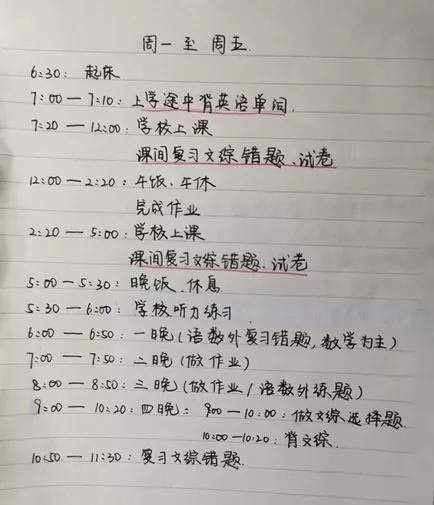 周一至周五.
6:30: 起床
7:00 — 7:10: 上学途中背英语单词.
7:20 — 12:00: 学校上课
课间复习文综错题、试卷
12:00 — 2:20: 午饭、午休
完成作业
2:20 — 5:00: 学校上课
课间复习文综错题、试卷
5:00 — 5:30: 晚饭、休息
5:30 — 6:00: 学校听力练习
6:00 — 6:50: 一晚(语数外复习错题,数学为主)
7:00 — 7:50: 二晚(做作业)
8:00 — 8:50: 三晚(做作业/语数外练题)
9:00 — 10:20: 四晚: 9:00 — 10:00: 做文综选择题.
10:00 — 10:20: 背文综.
10:50 — 11:30: 复习文综错题.